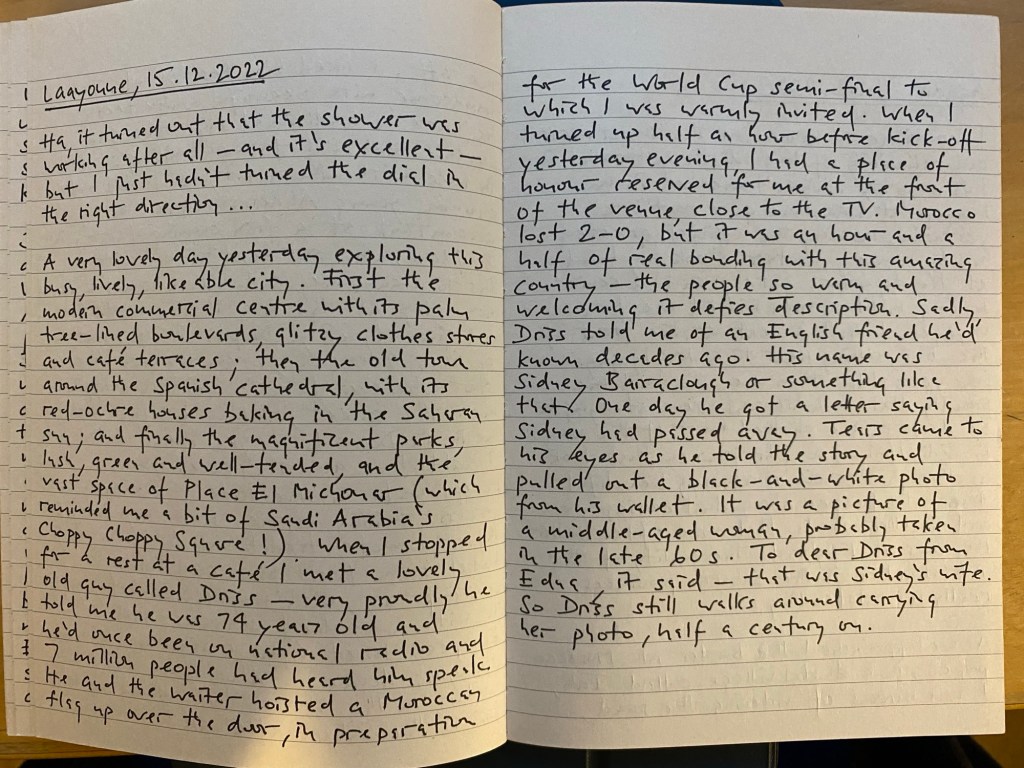 Laayoune, 15.12.2022
Ha, it turned out that the shower was
working after all – and it's excellent –
but I just hadn't turned the dial in
the right direction...
A very lovely day yesterday exploring this
busy, lively, likeable city. First the
modern commercial centre with its palm
tree-lined boulevards, glitzy clothes stores
and café terraces; then the old town
around the Spanish cathedral, with its
red-ochre houses baking in the Saharan
sun; and finally the magnificent parks,
lush, green and well-tended, and the
vast space of Place El Michouar (which
reminded me a bit of Saudi Arabia's
Choppy Choppy Square!) When I stopped
for a rest at a café I met a lovely
old guy called Driss – very proudly he
told me he was 74 years old and
he'd once been on national radio and
7 million people had heard him speak.
He and the waiter hoisted a Moroccan
flag up over the door, in preparation
for the World Cup semi-final to
which I was warmly invited. When I
turned up half an hour before kick-off
yesterday evening, I had a place of
honour reserved for me at the front
of the venue, close to the TV. Morocco
lost 2-0, but it was an hour and a
half of real bonding with this amazing
country – the people so warm and
welcoming it defies description. Sadly,
Driss told me of an English friend he'd
known decades ago. His name was
Sidney Barraclough or something like
that. One day he got a letter saying
Sidney had passed away. Tears came to
his eyes as he told the story and
pulled out a black-and-white photo
from his wallet. It was a picture of
a middle-aged woman, probably taken
in the late '60s. To dear Driss from
Edna, it said – that was Sidney's wife.
So Driss still walks around carrying
her photo, half a century on.